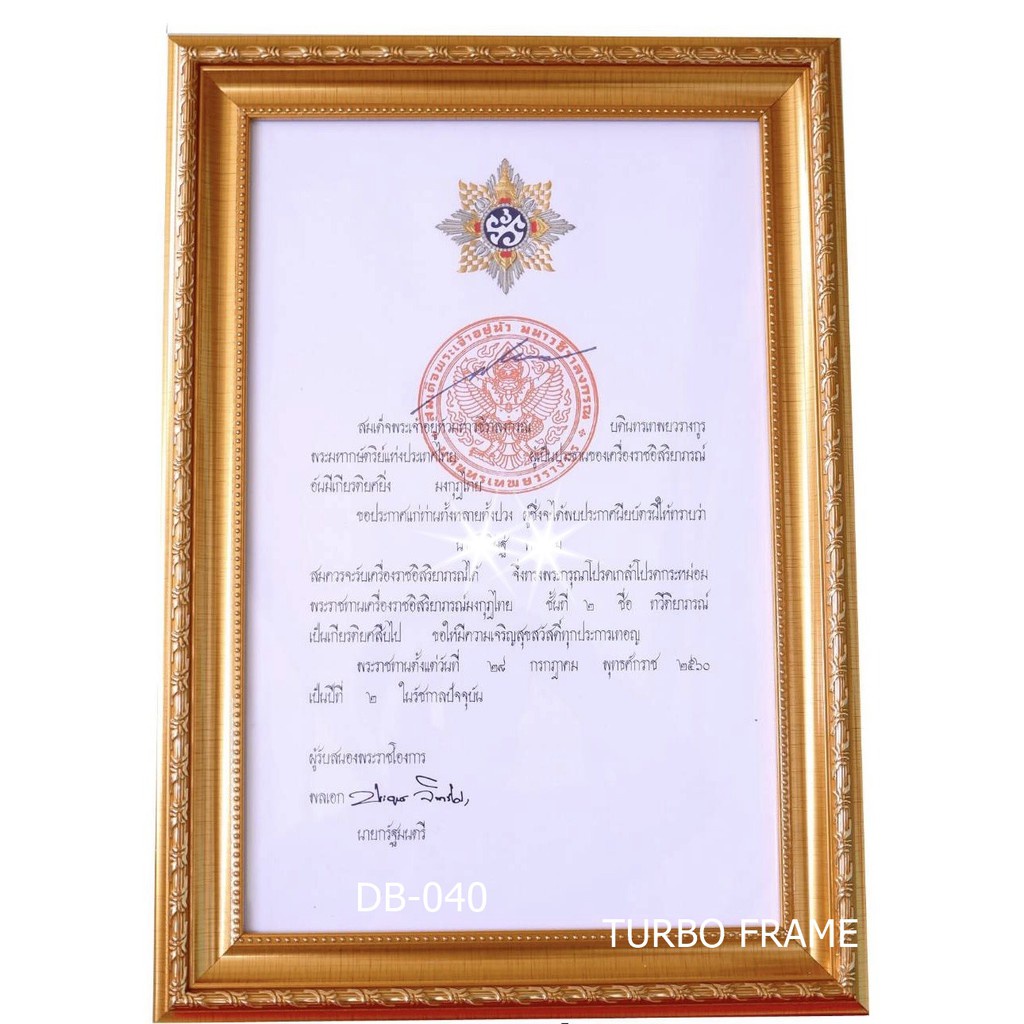 สมเด็จพระเจ้าอยู่หัว มหาวชิราลงกรณ
บดินทรเทพยวรางกูร
สมเด็จพระเจ้าอยู่หัวมหาวชิราลงกรณ บดินทรเทพยวรางกูร
พระมหากษัตริย์แห่งประเทศไทย ผู้เป็นประธานของเครื่องราชอิสริยาภรณ์
อันมีเกียรติยศยิ่ง มงกุฎไทย
ขอประกาศแก่ท่านทั้งหลายทั้งปวง ผู้ซึ่งจะได้พบประกาศนียบัตรนี้ให้ทราบว่า
สมควรจะรับเครื่องราชอิสริยาภรณ์ได้ จึ่งทรงพระกรุณาโปรดเกล้าโปรดกระหม่อม
พระราชทานเครื่องราชอิสริยาภรณ์มงกุฎไทย ชั้นที่ ๒ ชื่อ ทวีติยาภรณ์
เป็นเกียรติยศสืบไป ขอให้มีความเจริญสุขสวัสดิ์ทุกประการเทอญ
พระราชทานตั้งแต่วันที่ ๒๘ กรกฎาคม พุทธศักราช ๒๕๖๐
เป็นปีที่ ๒ ในรัชกาลปัจจุบัน
ผู้รับสนองพระราชโองการ
พลเอก
นายกรัฐมนตรี
DB-040
TURBO FRAME